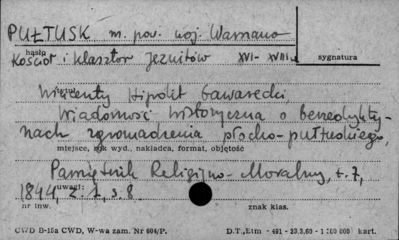 PUŁTUSK m. pow. woj. Warszawa
hasło
Kościół i klasztor Jezuitów XVI-XVIII w.
sygnatura
Wincenty Hipolit Gawarecki,
Wiadomość historyczna o benedykty-
nach zgromadzenia płocko-pułtuskiego,
miejsce, rok wyd., nakładca, format, objętość
Pamiętnik Religijno-Moralny, t. 7,
1844, z. 1, s. 8.
uwagi:
nr inw.
znak klas.
CWD B-15a CWD, W-wa zam. Nr 604/P.
D.T., Łtm - 491 - 23.3.60 - 1 500 000 kart.